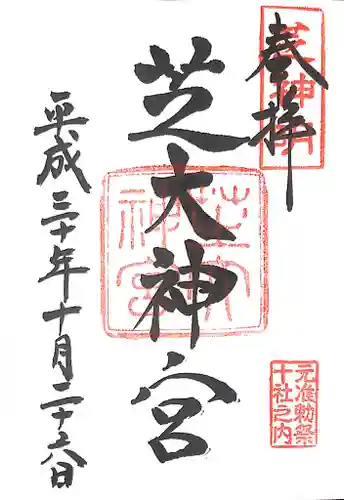 奉拝
芝神明
芝大神宮
元准勅祭
十社之内
平成三十年十月二十六日